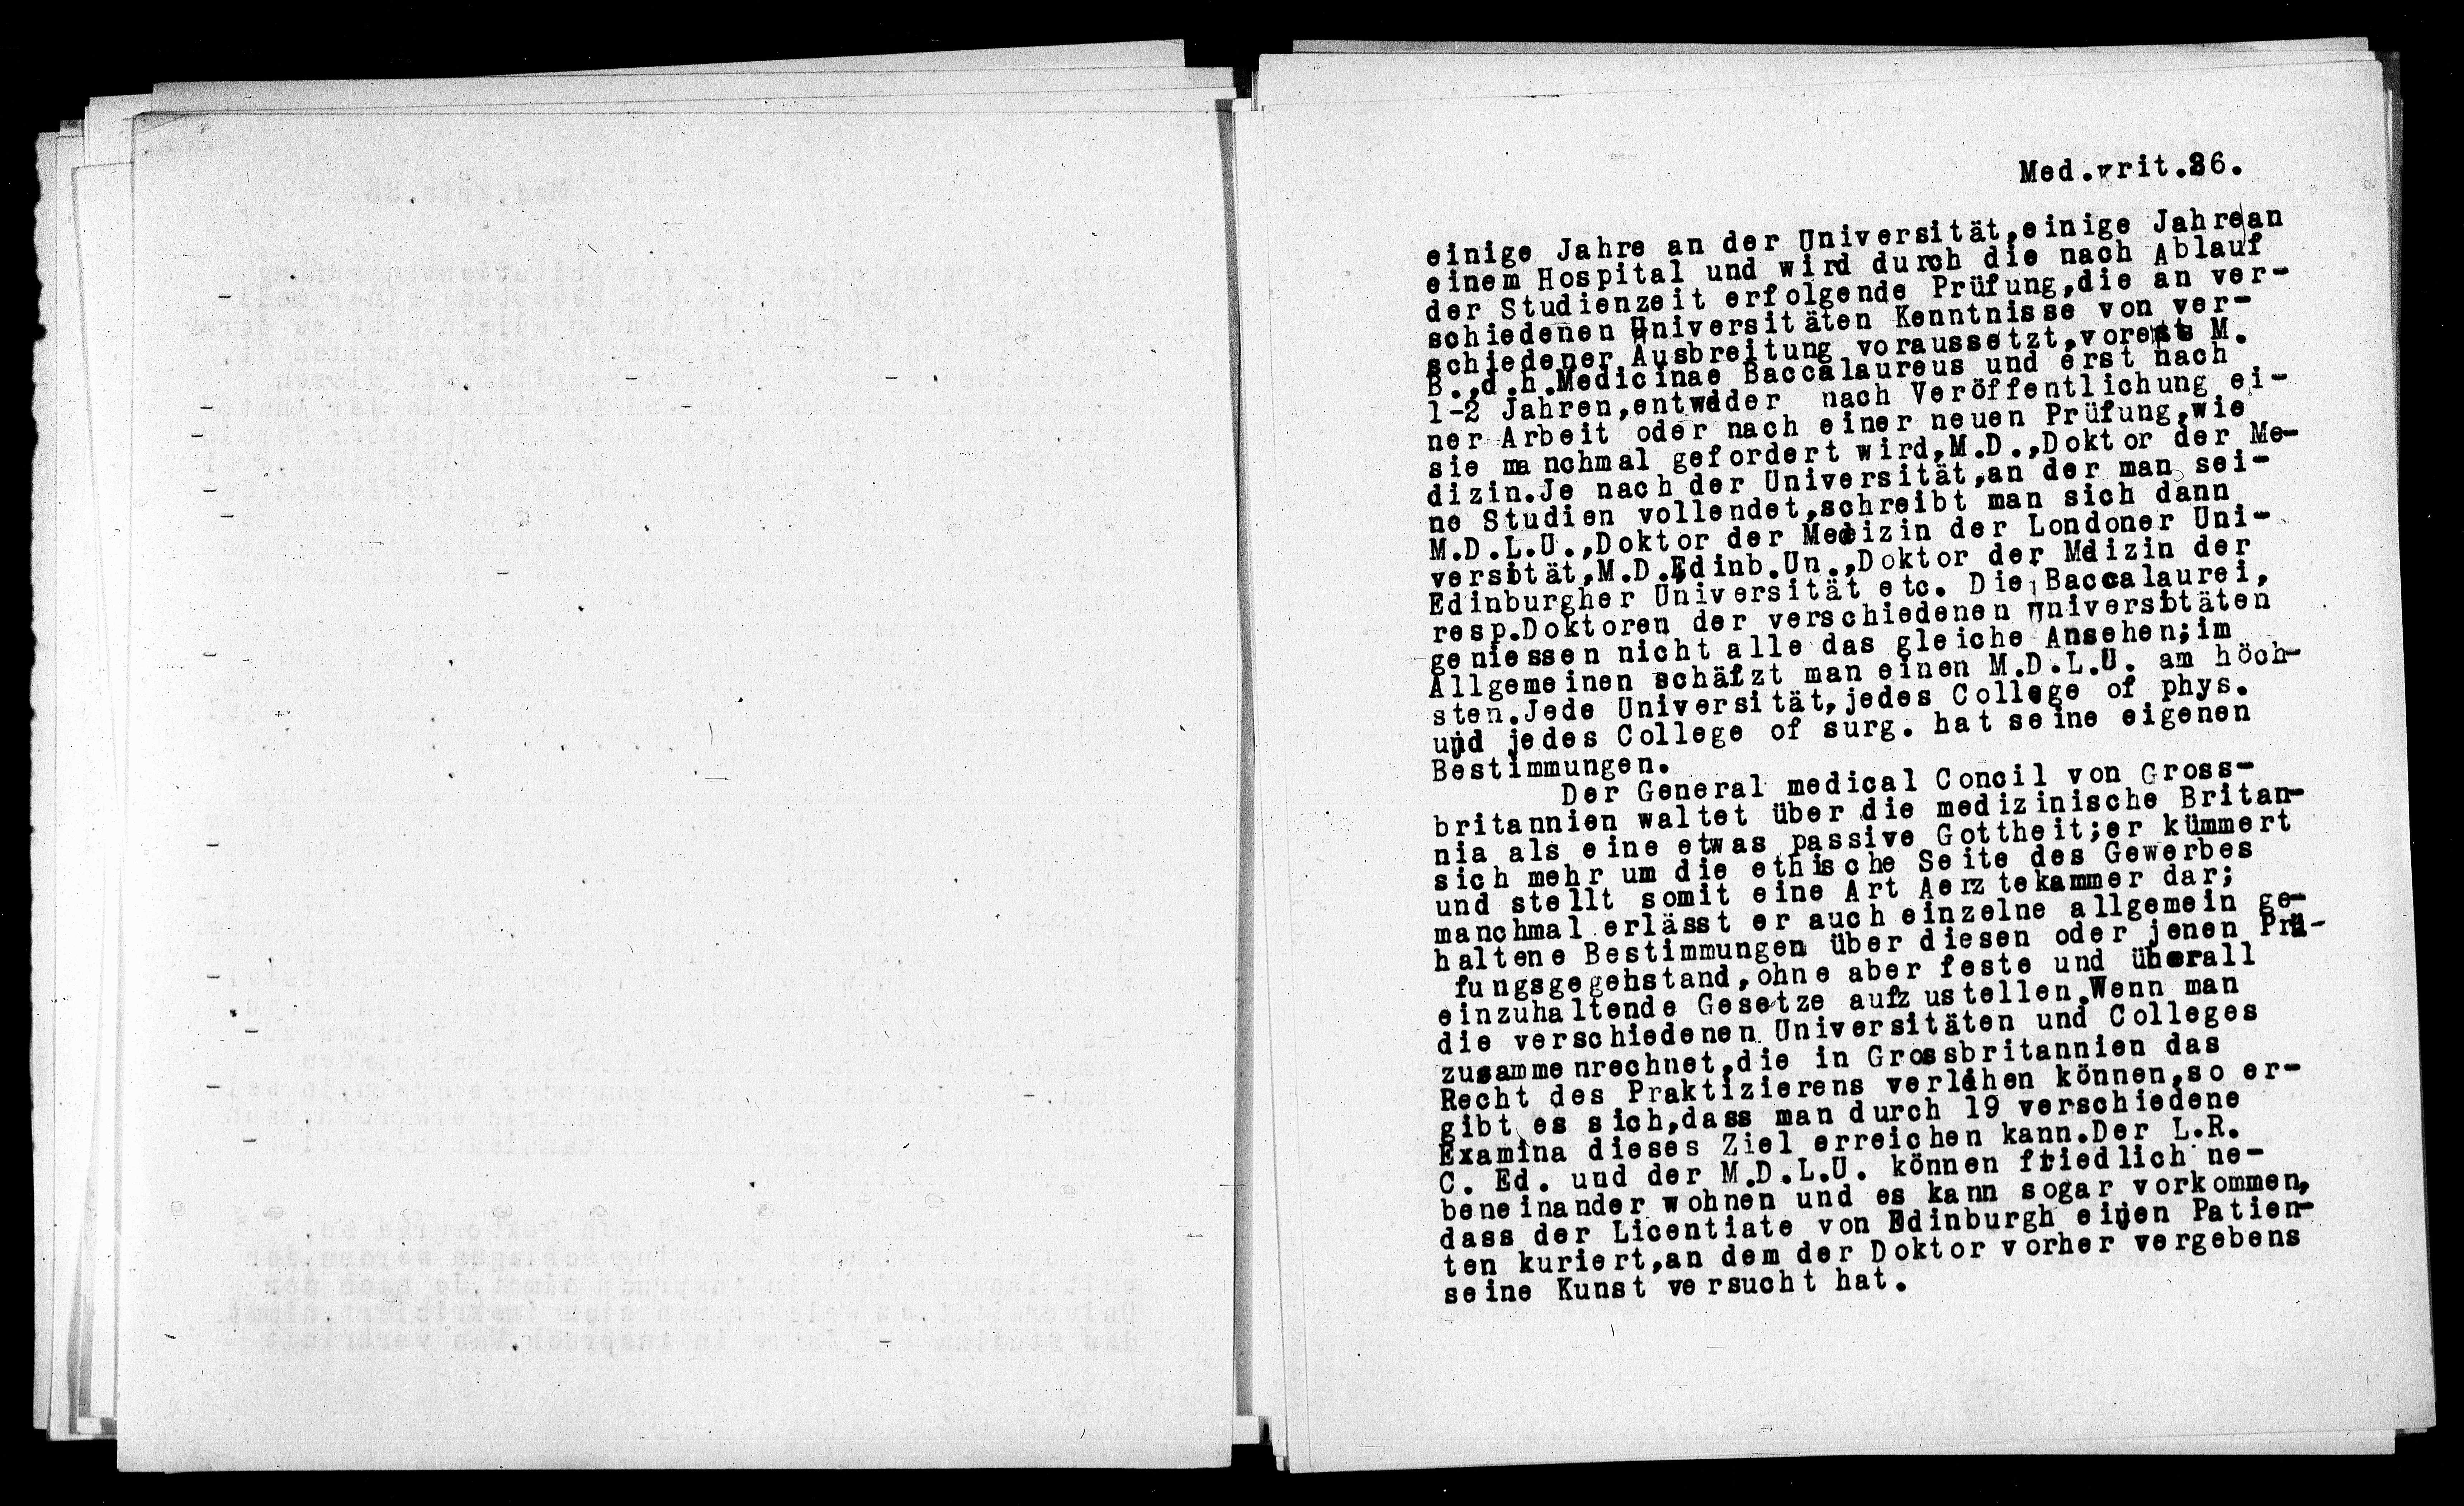 Med.krit.36.
einige Jahre an der Universität,einige Jahre an
einem Hospital und wird durch die nach Ablauf
der Studienzeit erfolgende Prüfung,die an ver-
schiedenen Universitäten Kenntnisse von ver-
schiedener Ausbreitung voraussetzt,vorerst M.
B.,d.h.Medicinae Baccalaureus und erst nach
1-2 Jahren,entweder nach Veröffentlichung ei-
ner Arbeit oder nach einer neuen Prüfung,wie
sie manchmal gefordert wird,M.D.,Doktor der Me-
dizin.Je nach der Universität,an der man sei-
ne Studien vollendet,schreibt man sich dann
M.D.L.U.,Doktor der Medizin der Londoner Uni-
versität,M.D.Edinb.Un.,Doktor der Mdizin der
Edinburgher Universität etc. Die Baccalaurei,
resp.Doktoren der verschiedenen Universitäten
geniessen nicht alle das gleiche Ansehen;im
Allgemeinen schätzt man einen M.D.L.U. am höch-
sten.Jede Universität,jedes College of phys.
und jedes College of surg. hat seine eigenen
Bestimmungen.
Der General medical Concil von Gross-
britannien waltet über die medizinische Britan-
nia als eine etwas passive Gottheit;er kümmert
sich mehr um die ethische Seite des Gewerbes
und stellt somit eine Art Aerztekammer dar;
manchmal erlässt er auch einzelne allgemein ge-
haltene Bestimmungen über diesen oder jenen Prü-
fungsgegehstand,ohne aber feste und überall
einzuhaltende Gesetze aufzustellen.Wenn man
die verschiedenen Universitäten und Colleges
zusammenrechnet,die in Grossbritannien das
Recht des Praktizierens verlihen können,so er-
gibt es sich,dass man durch 19 verschiedene
Examina dieses Ziel erreichen kann.Der L.R.
C. Ed. und der M.D.L.U. können friedlich ne-
beneinander wohnen und es kann sogar vorkommen,
dass der Licentiate von Edinburgh einen Patien-
ten kuriert,an dem der Doktor vorher vergebens
seine Kunst versucht hat.